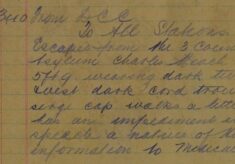 3110 From S.C.C
To All Stations
Escaped from the 3 Coun
Asylum Charles Beach
5ft 9. wearing dark tw
Vest dark cord trou
serge cap walks a litt
has an impediment in
speech a native of
information to Medica